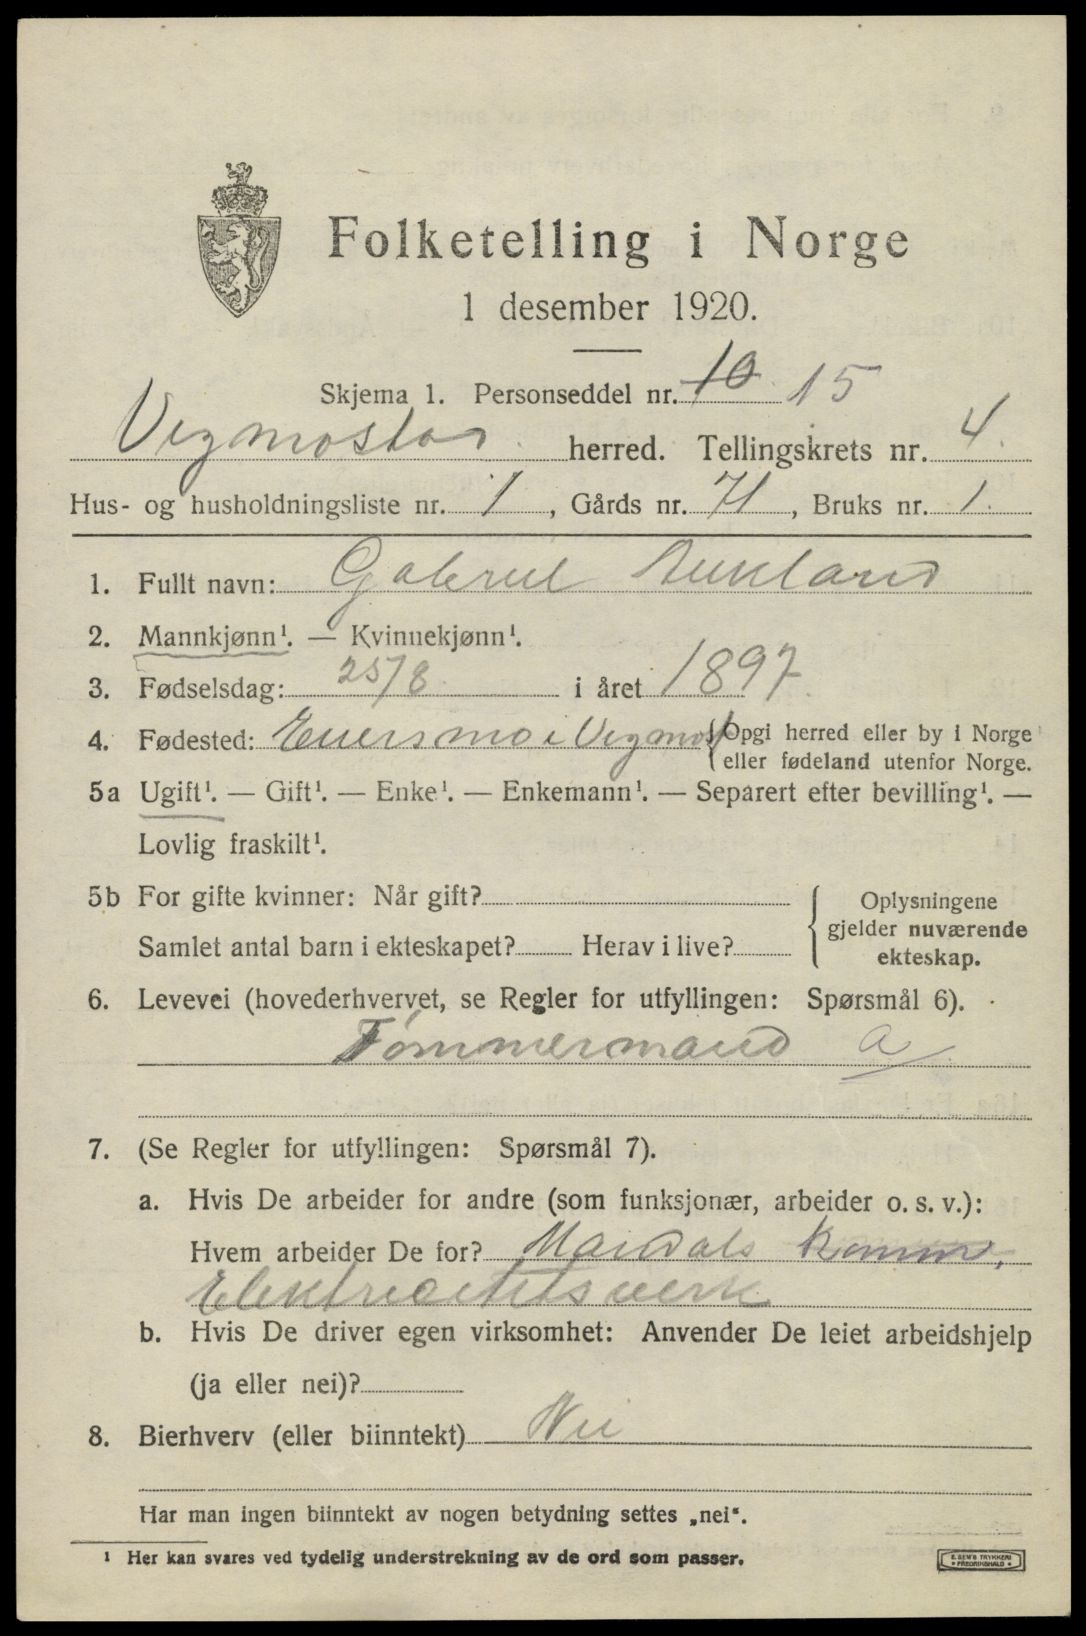 Folketelling i Norge
1 desember 1920.
Skjema 1. Personseddel nr. 10 15
Vegmostad herred. Tellingskrets nr. 4.
Hus- og husholdningsliste nr. 1, Gårds nr. 71, Bruks nr. 1.
1. Fullt navn: Gabriel
2. Mannkjønn¹. — Kvinnekjønn¹.
3. Fødselsdag: 25/8 i året 1897.
4. Fødested: i Vegmost {Opgi herred eller by i Norge
eller fødeland utenfor Norge.
5a Ugift¹. — Gift¹. — Enke¹. — Enkemann¹. — Separert efter bevilling¹. —
Lovlig fraskilt¹.
5b For gifte kvinner: Når gift?
Samlet antal barn i ekteskapet? Herav i live?
Oplysningene
gjelder nuværende
ekteskap.
6. Levevei (hovederhvervet, se Regler for utfyllingen: Spørsmål 6).
Tømmermand a
7. (Se Regler for utfyllingen: Spørsmål 7).
a. Hvis De arbeider for andre (som funksjonær, arbeider o. s. v.):
Hvem arbeider De for? Mandals Komm.
Elektricitetsverk
b. Hvis De driver egen virksomhet: Anvender De leiet arbeidshjelp
(ja eller nei)?
8. Bierhverv (eller biinntekt) Nei
Har man ingen biinntekt av nogen betydning settes „nei“.
¹ Her kan svares ved tydelig understrekning av de ord som passer.
E. SEM'S TRYKKERI
• FREDRIKSHALD •